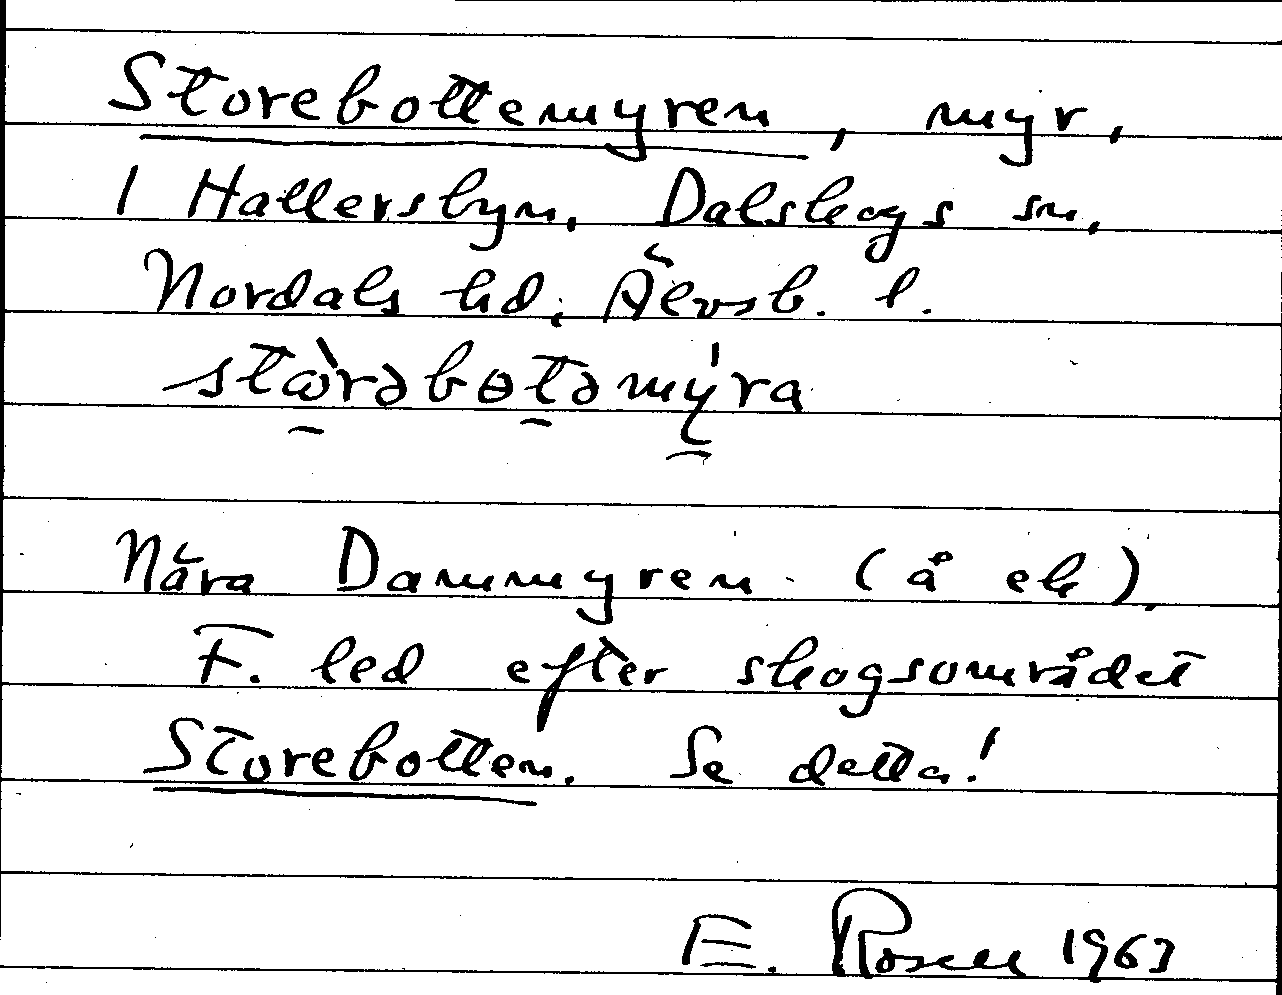 Storebottemyren, myr,
I Hallersbyn, Dalskogs sn,
Nordals hd, Älvsb. l.
stòrəbɵtəmy̍ra
Nära Dammyren (å ek).
F. led efter skogsområdet
Storebotten. Se detta!
E. Rosell 1963